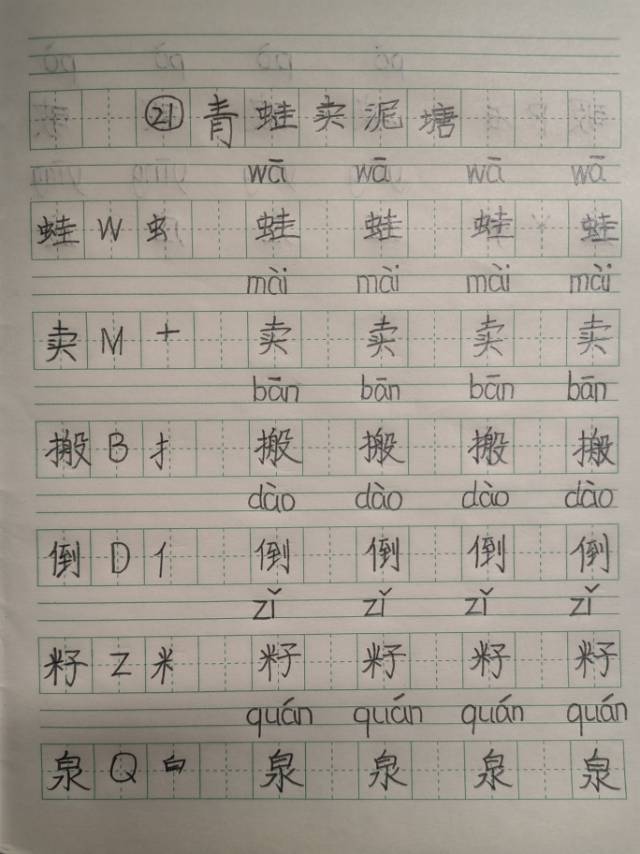 ㉑青蛙卖泥塘
wā wā wā wā
蛙 W 虫 蛙 蛙 蛙 蛙
mài mài mài mài
卖 M 十 卖 卖 卖 卖
bān bān bān bān
搬 B 扌 搬 搬 搬 搬
dào dào dào dào
倒 D 亻 倒 倒 倒 倒
zǐ zǐ zǐ zǐ
籽 Z 米 籽 籽 籽 籽
quán quán quán quán
泉 Q 白 泉 泉 泉 泉